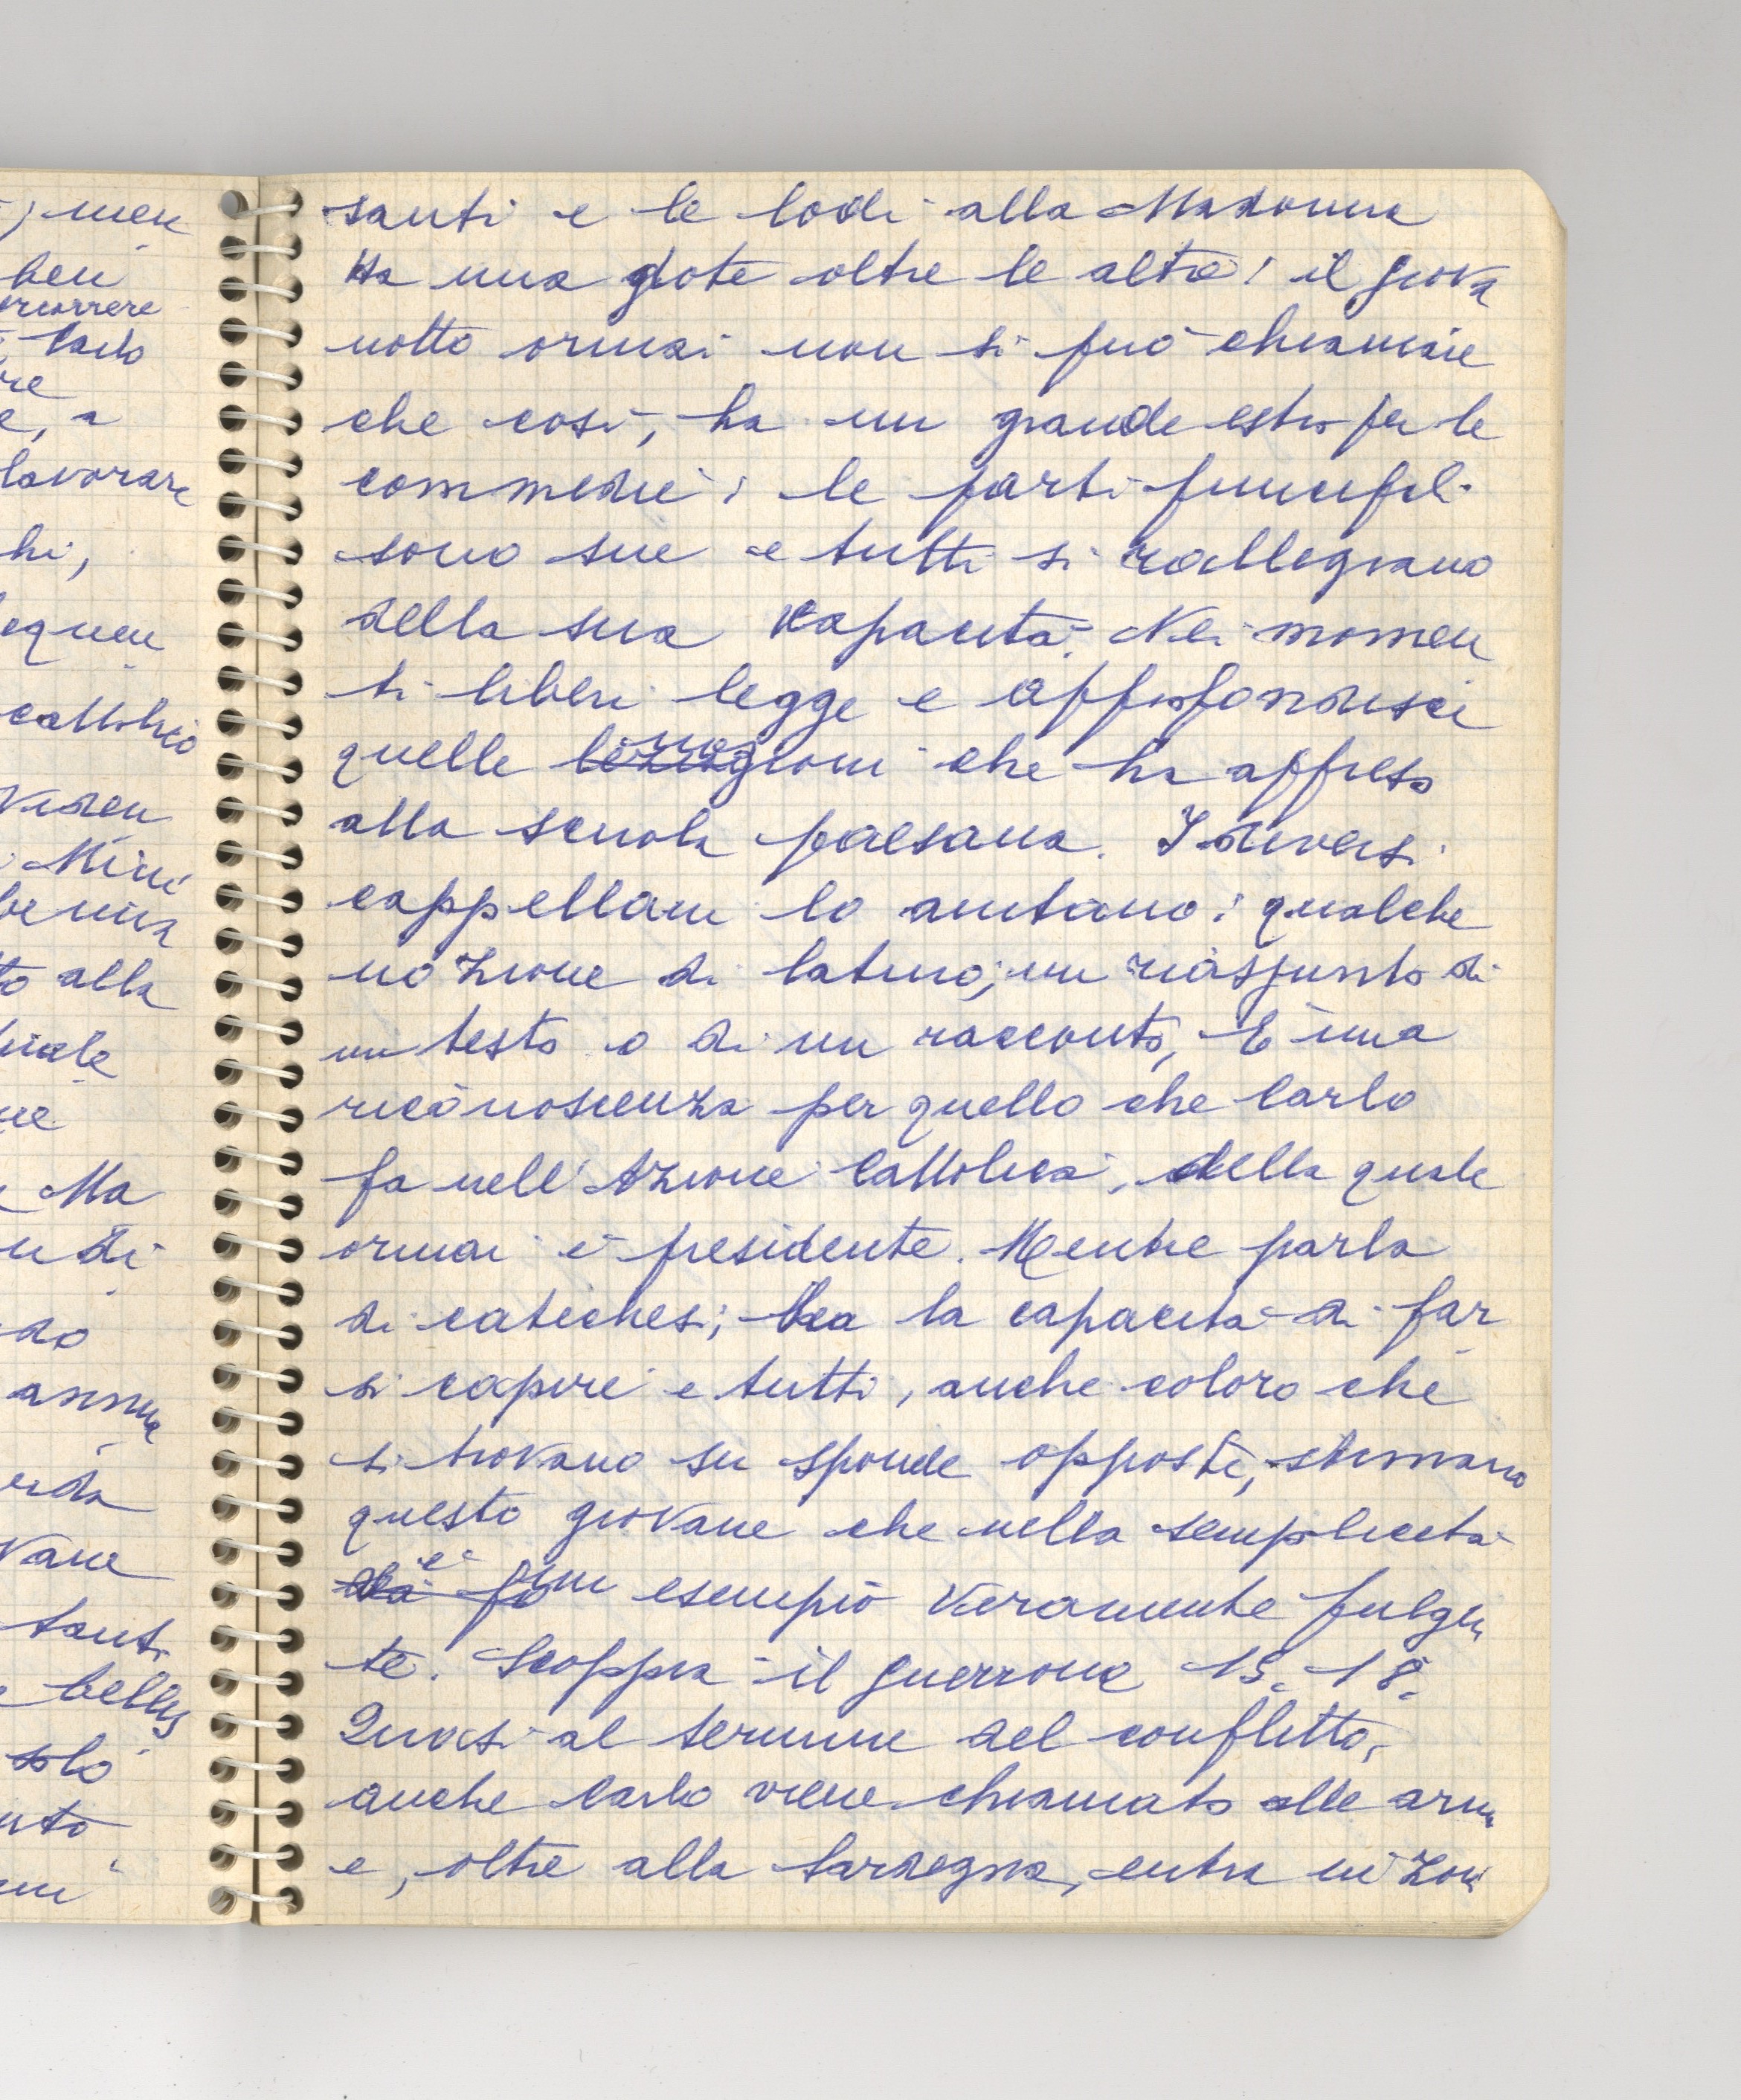 santi e le lodi alla Madonna
Ha una dote oltre le altre: il giova
notto ormai non si può chiamare
che così, ha un grande estro per le
commedie; le parti principali
sono sue e tutti si rallegrano
della sua capacità. Nei momen
ti liberi legge e approfondisce
quelle nozioni che ha appreso
alla scuola paesana. I diversi
cappellani lo aiutano: qualche
nozione di latino, un riassunto di
un testo o di un racconto, È una
riconoscenza per quello che Carlo
fa nell'Azione Cattolica, della quale
ormai è presidente. Mentre parla
di catechesi; ha la capacità di far
si capire e tutti, anche coloro che
si trovano su sponde opposte, stimano
questo giovane che nella semplicità
è un esempio veramente fulgen
te. Scoppia il guerrone 15-18.
Quasi al termine del conflitto,
anche Carlo viene chiamato alle armi
e, oltre alla Sardegna, entra in zona
men
ben
correre
Carlo
re
e, a
lavorare
hi,
equen
cattolico
viden
Mini
to alla
ne
Ma
n di
do
vane
tanti
solo
nto